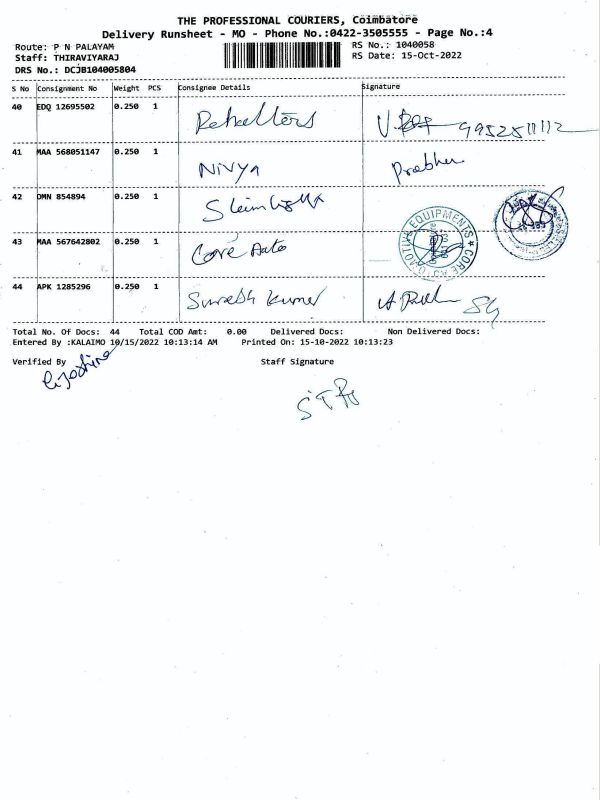 THE PROFESSIONAL COURIERS, Coimbatore
Delivery Runsheet - MO - Phone No.:0422-3505555 - Page No.:4
Route: P N PALAYAM RS No.: 1040058
Staff: THIRAVIYARAJ RS Date: 15-Oct-2022
DRS No.: DCJB104005804
S No Consignment No Weight PCS Consignee Details Signature
40 EDQ 12695502 0.250 1 9952511112
41 MAA 568051147 0.250 1 Nivya Prabhu
42 OMN 854894 0.250 1
43 MAA 567642802 0.250 1 Core Auto EQUIPMENTS ★ CORE
44 APK 1285296 0.250 1 Suresh Kumar
Total No. Of Docs: 44 Total COD Amt: 0.00 Delivered Docs: Non Delivered Docs:
Entered By :KALAIMO 10/15/2022 10:13:14 AM Printed On: 15-10-2022 10:13:23
Verified By Staff Signature